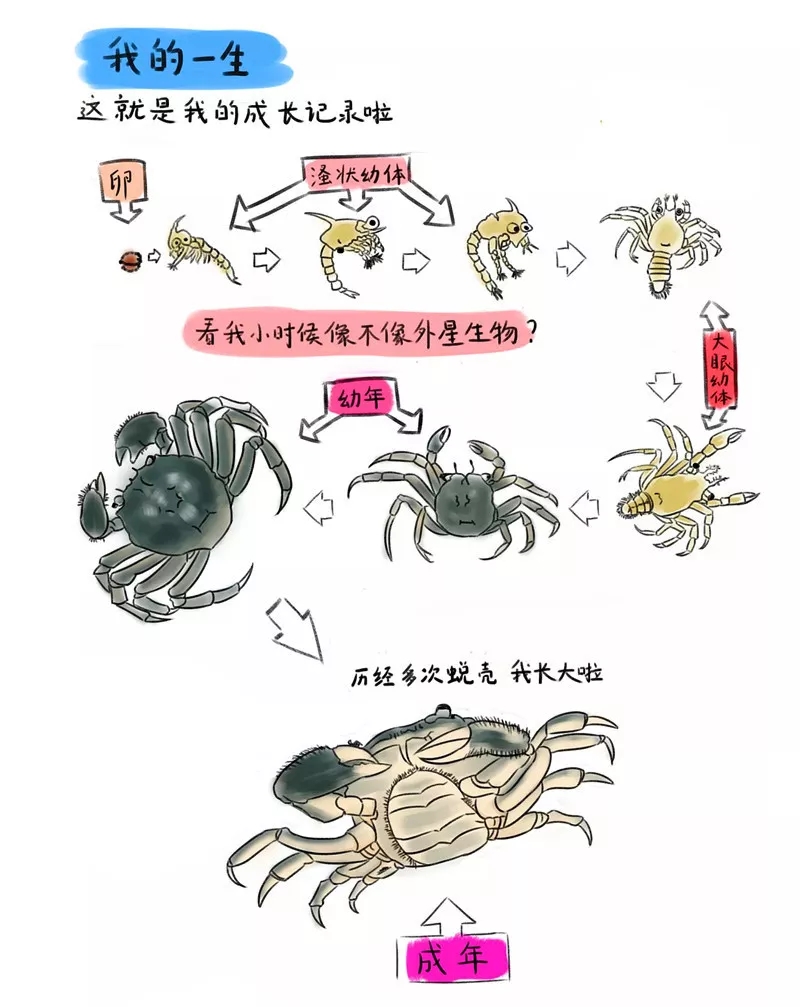 我的一生
这就是我的成长记录啦
卵
溞状幼体
看我小时候像不像外星生物?
大眼幼体
幼年
历经多次蜕壳 我长大啦
成年